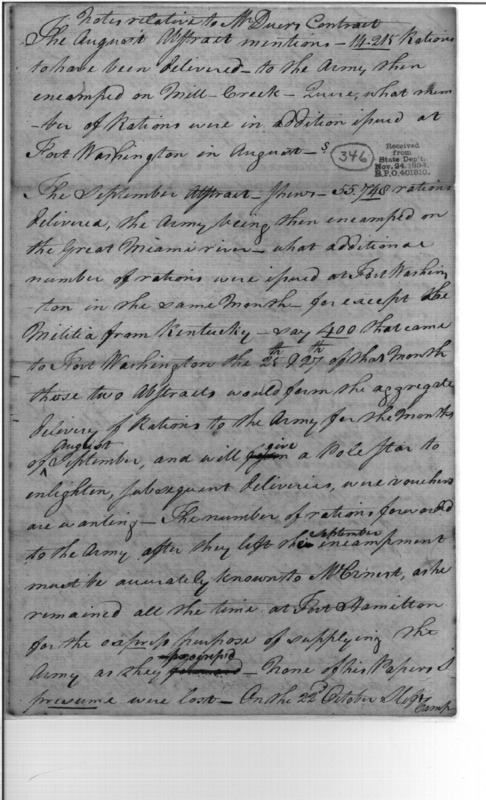 Notes relative to Mr Duers Contract
The August Abstract mentions - 14-215 Rations
to have been delivered - to the Army then
encamped on Mill-Creek - Quere, what num
-ber of Rations were in addition issued at
Fort Washington in August -
346
Received
from
State Dep't.
Nov. 24, 1894.
R.P.O. 401810.
The September Abstract - Shews - 55.748 rations
delivered, the Army being then encamped on
the Great Miami river - what additional
number of rations were issued at Fort Washing
ton in the same Month - for except the
Militia from Kentucky - say 400 that came
to Fort Washington the 25th & 27th of that Month
these two Abstracts would form the aggregate
delivery of Rations to the Army for the Months
August
of ^ September, and will give a Pole Star to
enlighten, subsequent deliveries, were vouchers
are wanting - The number of rations forwarded
September
to the Army after they left the encampment
must be accurately known to Mr Ernest, as he
remained all the time at Fort Hamilton
for the express purpose of supplying the
Army as they - None of his Papers I
presume were lost - On the 22d October
Camp